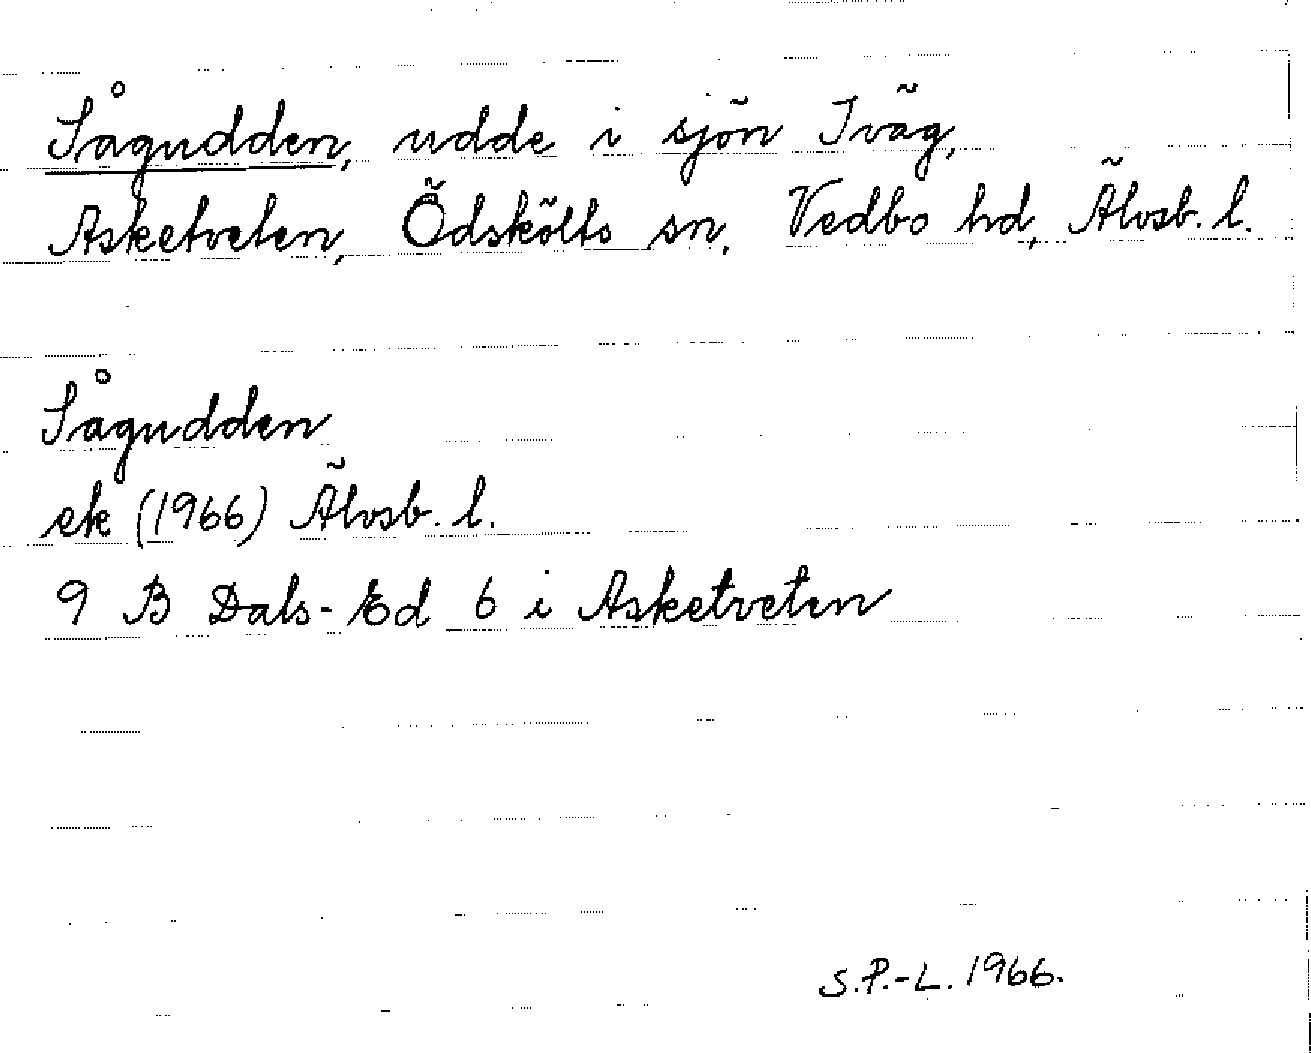 Sågudden, udde i sjön Iväg,
Asketveten, Ödskölts sn, Vedbo hd, Älvsb. l.
Sågudden
ek (1966) Älvsb. l.
9 B Dals-Ed 6 i Asketveten
S.P.-L. 1966.